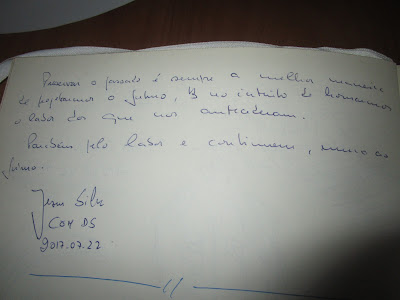 Preservar o passado é sempre a melhor maneira
de perpetuarmos o futuro, no intuito de honrarmos
o labor dos que nos antecederam.
Parabéns pelo labor e continuem, rumo ao
futuro.
Silva
COM DS
2017.07.22